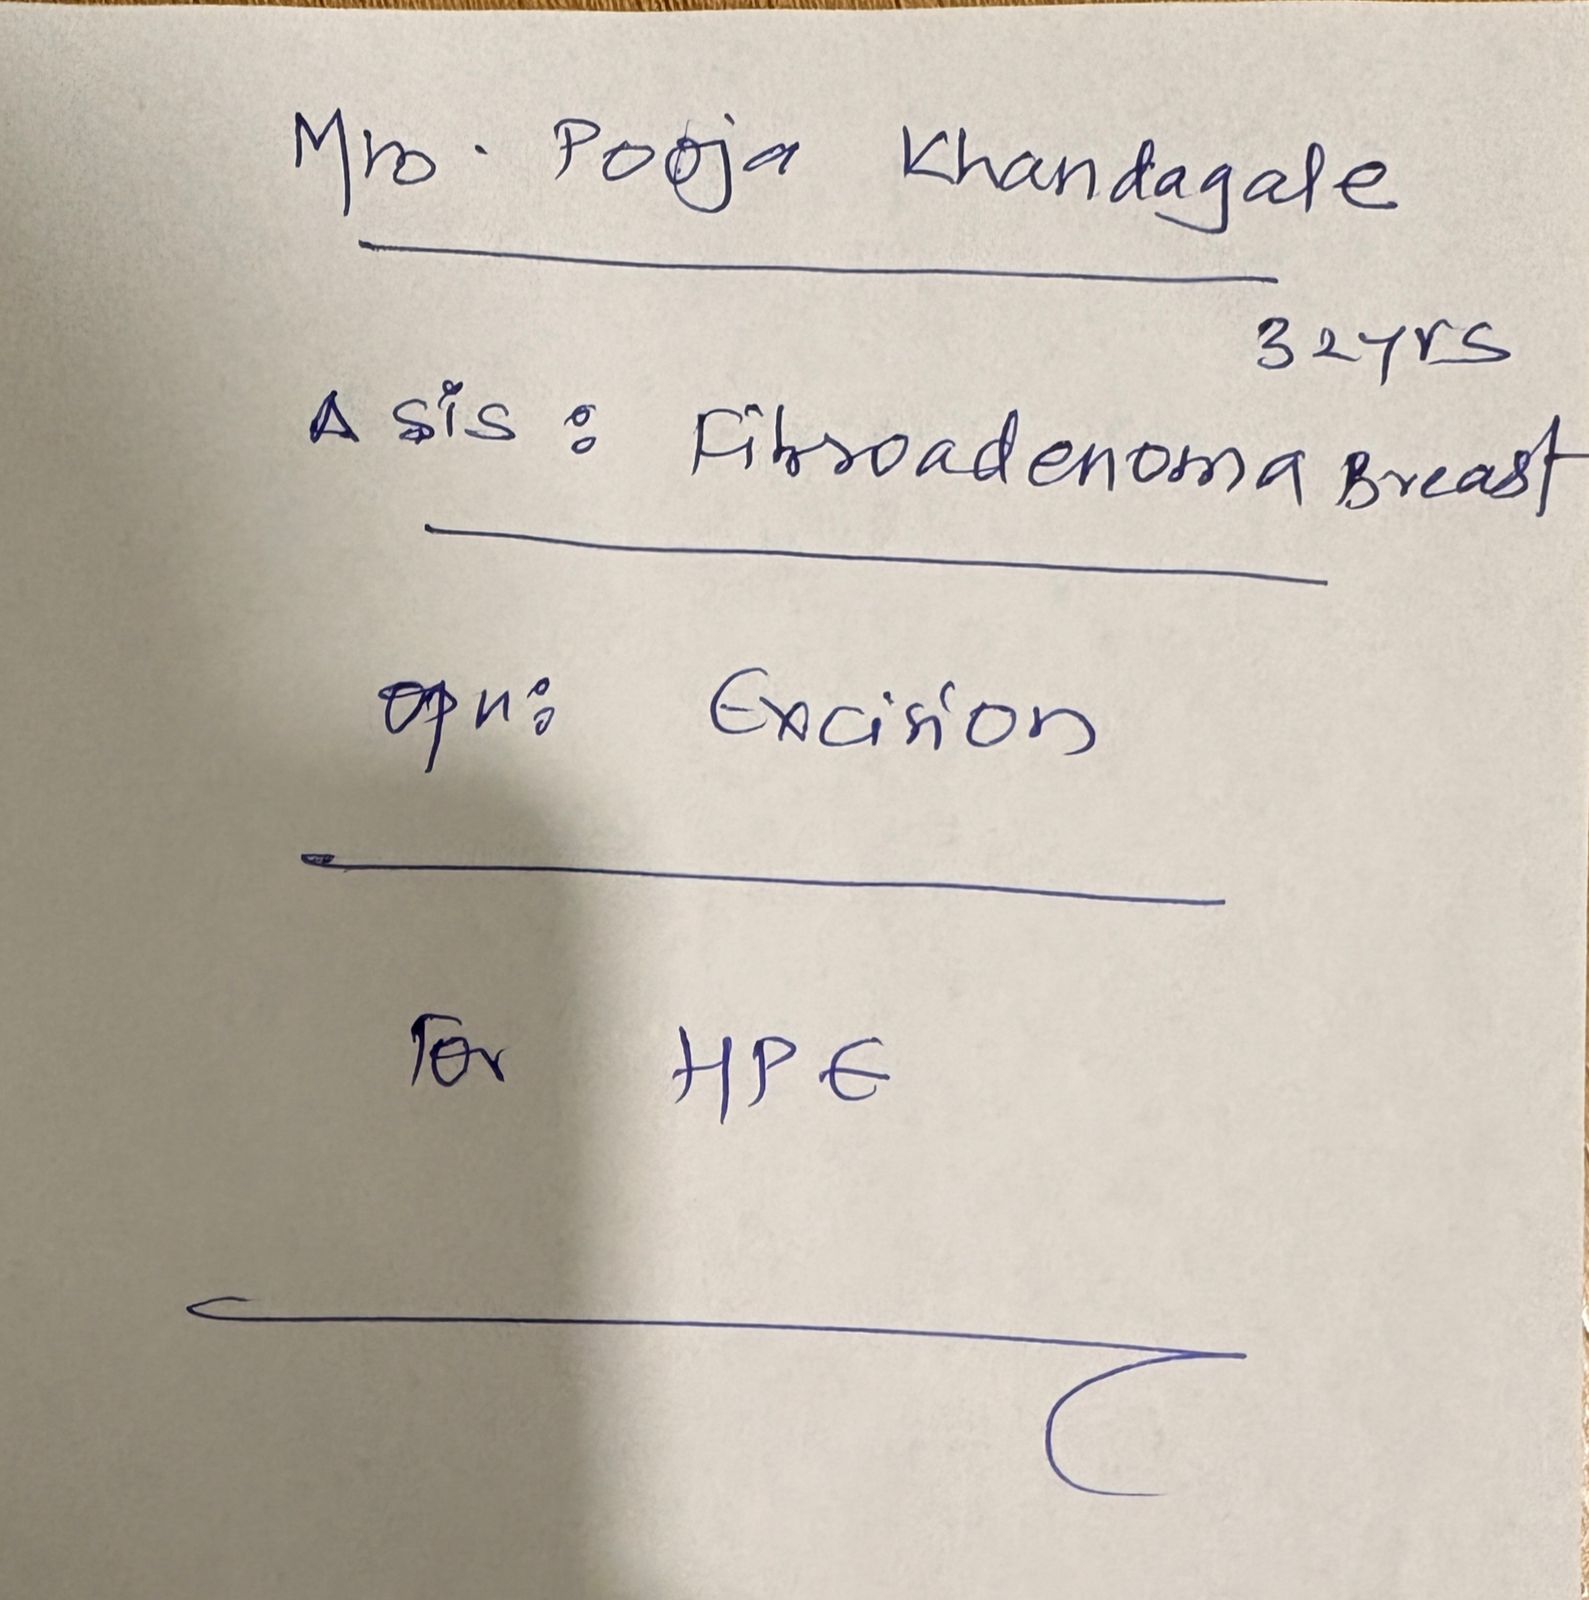 Mrs. Pooja Khandagale
32yrs
Δsis: Fibroadenoma Breast
opn: Excision
For HPE